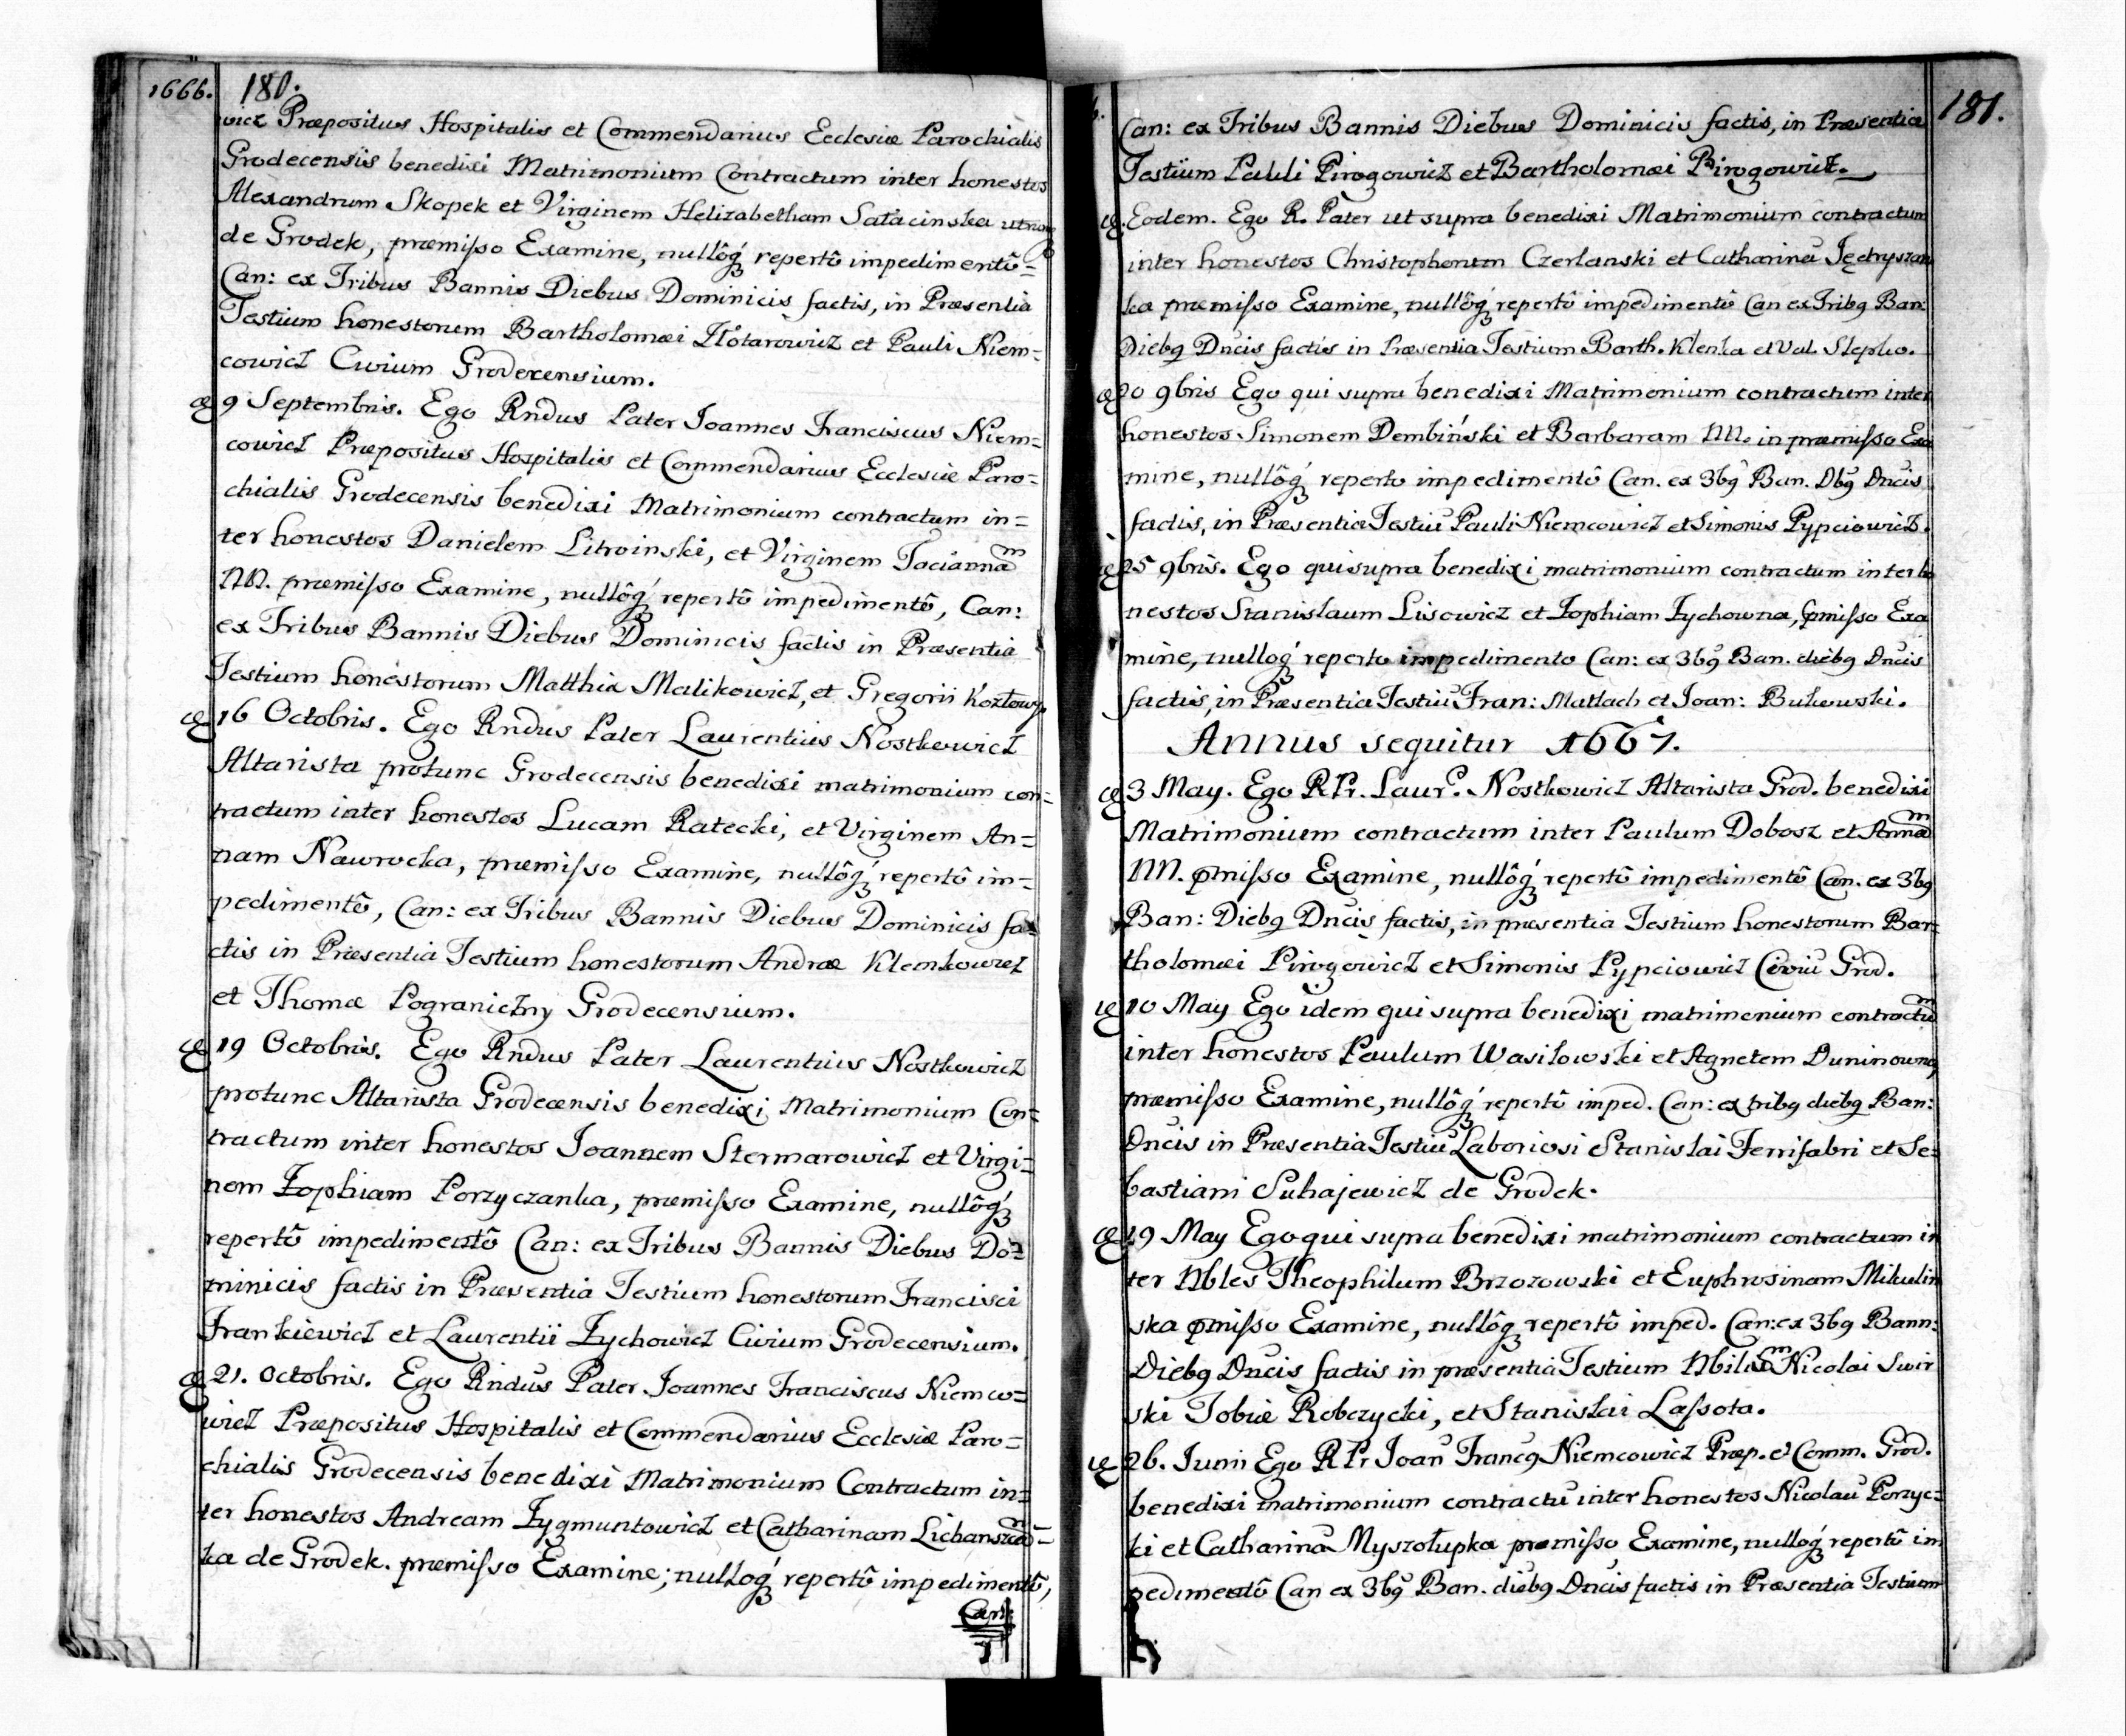 1666. 180.
wicz Præpositus Hospitalis et Commendarius Ecclesiæ Parochialis
Grodecensis benedixi Matrimonium Contractum inter honestos
Alexandrum Skopek et Virginem Helizabetham
de Grodek, præmisso Examine, nullôq́ʒ repertô impedimentô=
Can: ex Tribus Bannis Diebus Dominicis factis, in Præsentia
Testium honestorum Bartholomæi et Pauli Niem=
cowicz Civium Grodecensium.
9 Septembris. Ego Rndus Pater Joannes Franciscus Niem=
cowicz Præpositus Hospitalis et Commendarius Ecclesiæ Paro=
chialis Grodecensis benedixi Matrimonium contractum in=
ter honestos Danielem Litwinski, et Virginem Taciannaᵐ
NN. præmisso Examine, nullôq́ʒ repertô impedimentô, Can:
ex Tribus Bannis Diebus Dominicis factis in Præsentia
Testium honestorum Matthiæ Malikowicz, et Gregorii
16 Octobris. Ego Rndus Pater Laurentius Nostkowicz
Altarista protunc Grodecensis benedixi matrimonium con=
tractum inter honestos Lucam Ratecki, et Virginem An=
nam Nawrocka, præmisso Examine, nullôq́ʒ repertô im=
pedimentô, Can: ex Tribus Bannis Diebus Dominicis fa=
ctis in Præsentia Testium honestorum Andræ Klemkowicz
et Thomæ Pograniczny Grodecensium.
19 Octobris. Ego Rndus Pater Laurentius Nostkowicz
protunc Altarista Grodecensis benedixi Matrimonium Con=
tractum inter honestos Joannem Stermarowicz et Virgi=
nem Zophiam Porzyczanka, præmisso Examine, nullôq́ʒ
repertô impedimentô Can: ex Tribus Bannis Diebus Do=
minicis factis in Præsentia Testium honestorum Francisci
Frankiewicz et Laurentii Zychowicz Civium Grodecensium.
21. Octobris. Ego Rndus Pater Joannes Franciscus Niemco=
wicz Præpositus Hospitalis et Commendarius Ecclesiæ Paro=
chialis Grodecensis benedixi Matrimonium Contractum in=
ter honestos Andream Zygmuntowicz et Catharinam
ka de Grodek. præmisso Examine; nullôq́ʒ repertô impedimentô,
Can:
181.
Can: ex Tribus Bannis Diebus Dominicis factis, in Præsentia
Testium Pauli Pirogowicz et Bartholomæi Pirogowicz.
Eodem. Ego R. Pater ut supra benedixi Matrimonium contractum
inter honestos Christophorum Czerlanski et Catharinā Jędryszan
ka præmisso Examine, nullôq́ʒ repertô impedimentô Can ex Tribꝯ Ban:
Diebꝯ Dncis factis in Præsentia Testium Barth. Klenka et Val. Slepko.
20 9bris Ego qui supra benedixi Matrimonium contractum inter
honestos Simonem Dembiński et Barbaram NN. in præmisso Exa
mine, nullôq́ʒ reperto impedimentô Can. ex 3bꝯ Ban. Dbꝯ Dncis
factis, in Præsentia Testiū Pauli Niemcowicz et Simonis Pypciowicz.
25 9bris. Ego qui supra benedixi matrimonium contractum inter ho
nestos Stanislaum Lisowicz et Zophiam Zychowna, pmisso Exa
mine, nulloq́ʒ reperto impedimento Can: ex 3bꝯ Ban. diebꝯ Dncis
factis, in Præsentia Testiū Fran: Matlach et Joan: Bukowski.
Annus sequitur 1667.
3 May. Ego R Pr. Laur. Nostkowicz Altarista Grod. benedixi
Matrimonium contractum inter Paulum Dobosz et Annaᵐ
NN. pmisso Examine, nullôq́ʒ repertô impedimentô Can. ex 3bꝯ
Ban: Diebꝯ Dncis factis, in præsentia Testium honestorum Bar=
tholomæi Pirogowicz et Simonis Pypciowicz Civiū Grod.
10 May Ego idem qui supra benedixi matrimonium contractūᵐ
inter honestos Paulum Wasilowski et Agnetem Duninowna,
præmisso Examine, nullôq́ʒ repertô imped. Can: ex tribꝯ diebꝯ Ban:
Dncis in Præsentia Testiū Laboriosi Stanislai Ferrifabri et Se=
bastiani Suhajewicz de Grodek.
19 May Ego qui supra benedixi matrimonium contractum in
ter Nbles Theophilum Brzozowski et Euphrosinam Mikulin
ska pmisso Examine, nullôqʒ repertô imped. Can: ex 3bꝯ Bann:
Diebꝯ Dncis factis in præsentia Testium Nicolai Swir
ski Tobiæ Robczycki, et Stanislai Lassota.
26. Junii Ego R Pr Joan Francꝯ Niemcowicz Præp. et Comm. Grod.
benedixi matrimonium contractū inter honestos Nicolaū Porzyc=
ki et Catharinā Myszołupka præmisso Examine, nulloq́ʒ repertô im
pedimentô Can ex 3bꝯ Ban. diebꝯ Dncis factis in Præsentia Testium